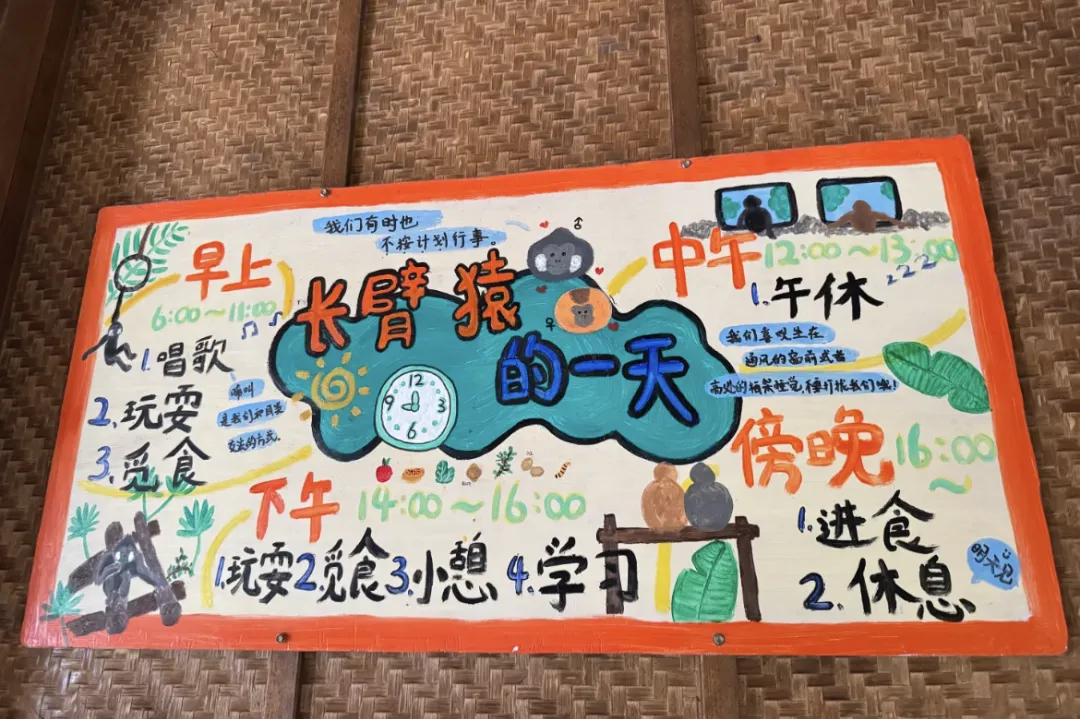 我们有时也
不按计划行事。
长臂猿
的一天
12
9
3
6
早上
6:00~11:00
1.唱歌
2.玩耍
3.觅食
鸣叫
是我们和同类
交流的方式。
中午
12:00~13:00
zzz
1.午休
我们喜欢坐在
通风的窗前或者
高处的栖架睡觉,
我们哦!
下午
14:00~16:00
1.玩耍2.觅食3.小憩4.学习
傍晚
16:00
~
1.进食
2.休息
明天见